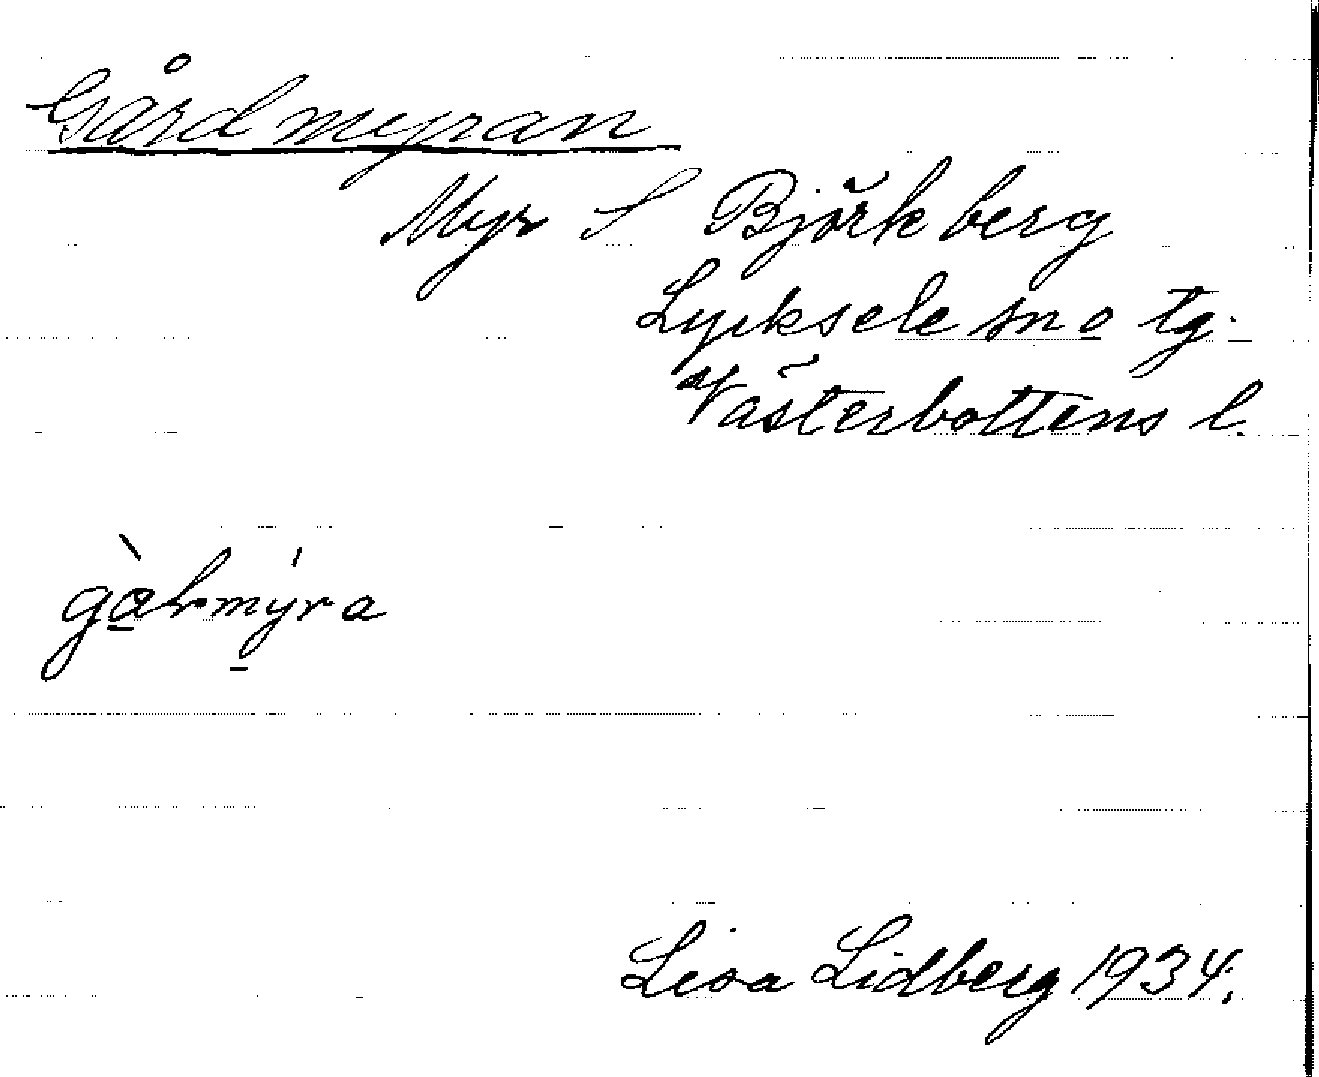 Gårdmyran
Myr S Björkberg
Lycksele sn o tg.
Västerbottens l.
gàrmýra
Lisa Lidberg 1934.